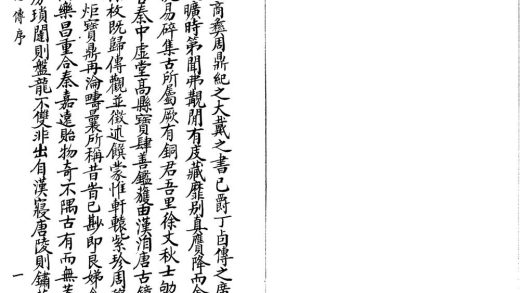 商彝周鼎紀之大戴之書已爵丁卣傳之廣
曠時第聞弗覯間有庋藏靡别真贋降而
易碎集古所屬厥有銅君吾里徐丈秋士
秦中虚堂高縣寶肆善鑑獲由漢洎唐古鏡
枚既歸傳觀並徵述饌蒙惟軒轅紫珍周
炬寶鼎再淪疇曩所稱昔者已尠即良娣
樂昌重合秦嘉遠貽物奇不隅古有而無
瑣闥則盤龍不雙非出自漢寢唐陵則鏽
傳序
一